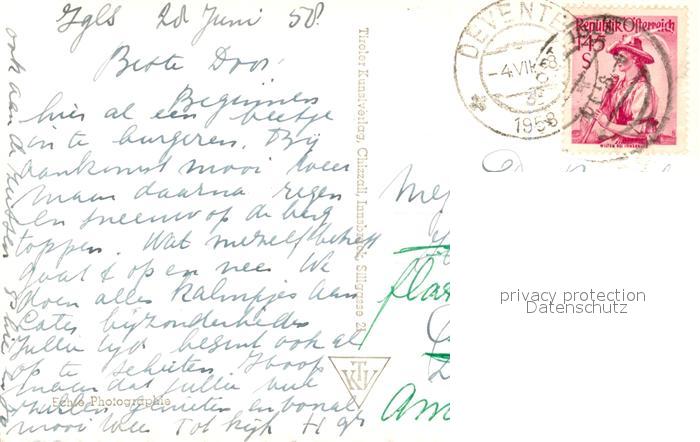 Igls 28 Juni 58.
Beste Doos!
Beginnen
hier al een beetje
in te burgeren. Bij
aankomst mooi weer
maar daarna regen
en sneeuw op de berg
toppen. Wat mezelf betreft
gaat 't op en neer We
doen alles kalmpjes aan
Later bijzonderheden
Jullie tijd begint ook al
op te schieten. Ik hoop
maar dat jullie
genieten en vooral
mooi weer Tot kijk
ook aan de
Echte Photographie
Tiroler Kunstverlag, Chizzali, Innsbruck, Sillgasse 21
TKV
DEVENTE
-4.VII.58
1958
Republik Österreich
1·45
S
WILTEN BEI INNSBRUCK
Me
flat
Am
privacy protection
Datenschutz